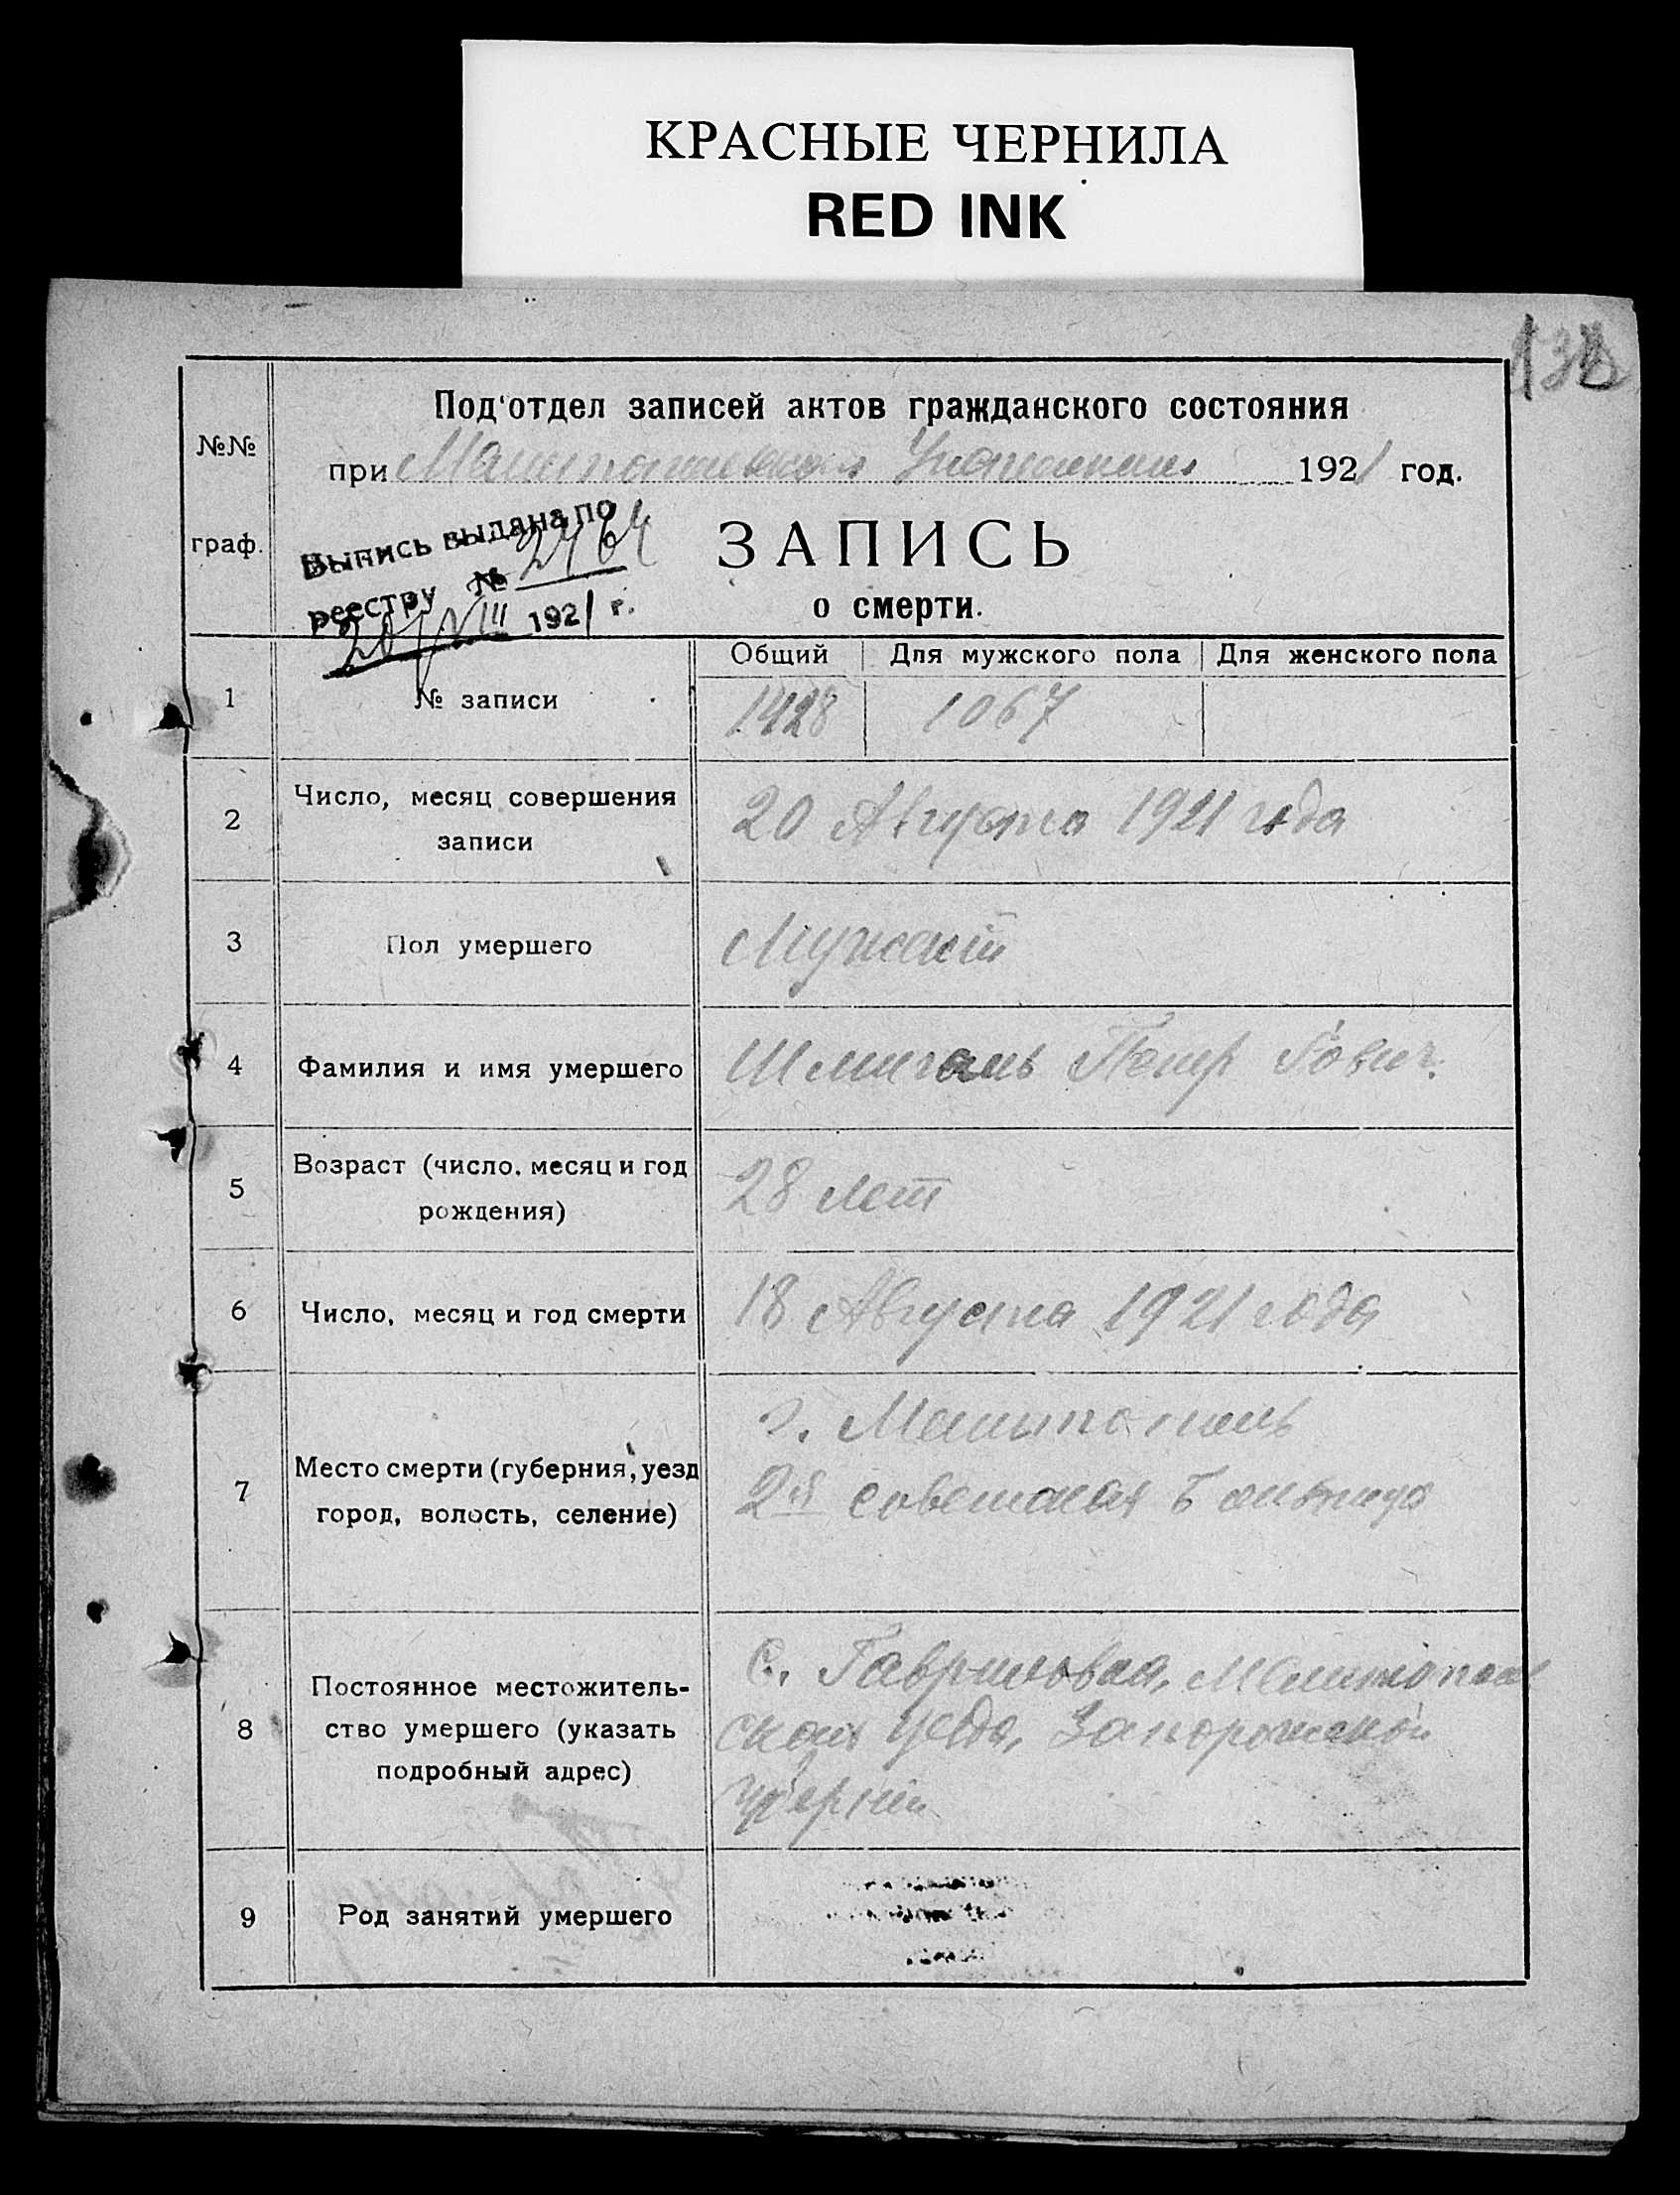 КРАСНЫЕ ЧЕРНИЛА
RED INK
138
Под‘отдел записей актов гражданского состояния
№№
при Мелитопольском 1921 год.
граф.
Выпись выдана по
реестру № 2464
20/VIII 1921 г.
ЗАПИСЬ
о смерти.
Общий Для мужского пола Для женского пола
1 № записи 1428 1067
2 Число, месяц совершения
записи
20 Августа 1921 года
3 Пол умершего Мужской
4 Фамилия и имя умершего Шмигаль Петр
5 Возраст (число, месяц и год
рождения)
28 лет
6 Число, месяц и год смерти 18 Августа 1921 года
7 Место смерти (губерния, уезд
город, волость, селение)
г. Мелитополь
2я советская Больница
8 Постоянное местожитель-
ство умершего (указать
подробный адрес)
С. Гавриловка, Мелитополь
ского уезда, Запорожской
губернии
9 Род занятий умершего